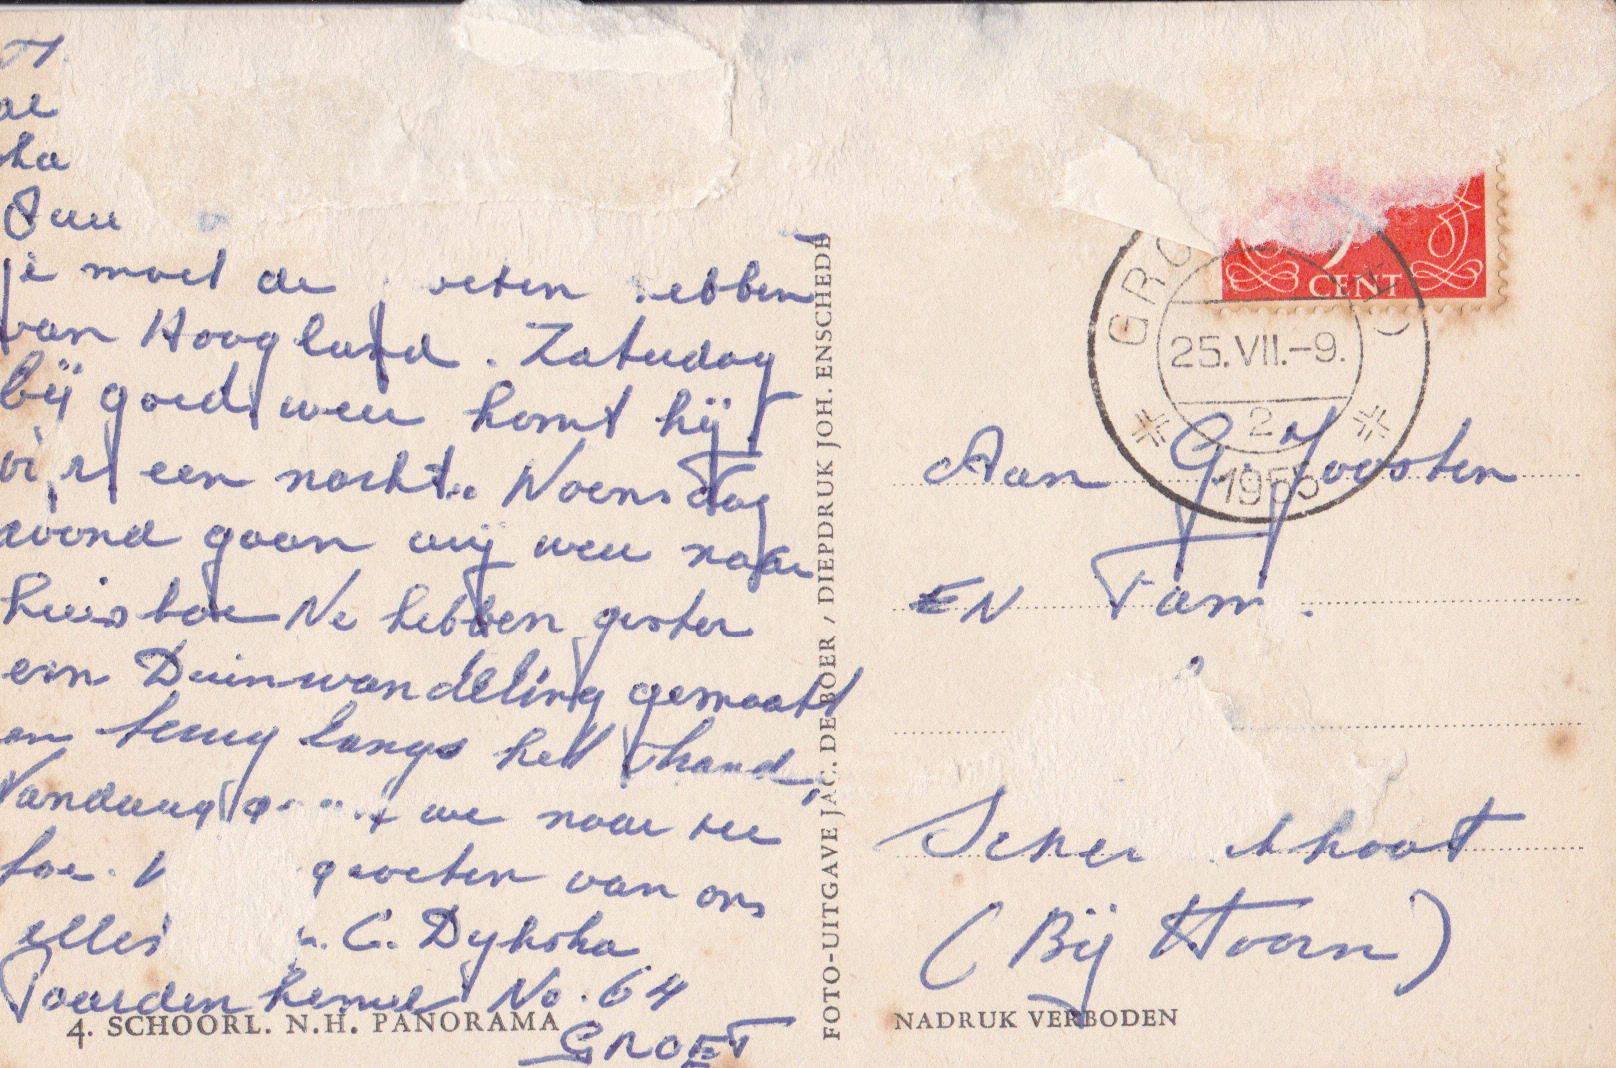 je moet de oeten ebben
van Hoogland. Zaterdag
bij goed weer komt hij
een nacht. Woensdag
avond gaan wij weer naar
huis toe We hebben gister
een Duinwandeling gemaakt
en terug langs het strand,
Vandaag we naar zee
toe. groeten van ons
C. Dykstra
Paardenhemel No. 64
GROET
4. SCHOORL. N.H. PANORAMA
FOTO-UITGAVE JAC. DE BOER / DIEPDRUK JOH. ENSCHEDÉ
CENT
GRO
25.VII.-9.
2
1955
Aan G. Joosten
EN Fam.
Scher khoot
(Bij Hoorn)
NADRUK VERBODEN